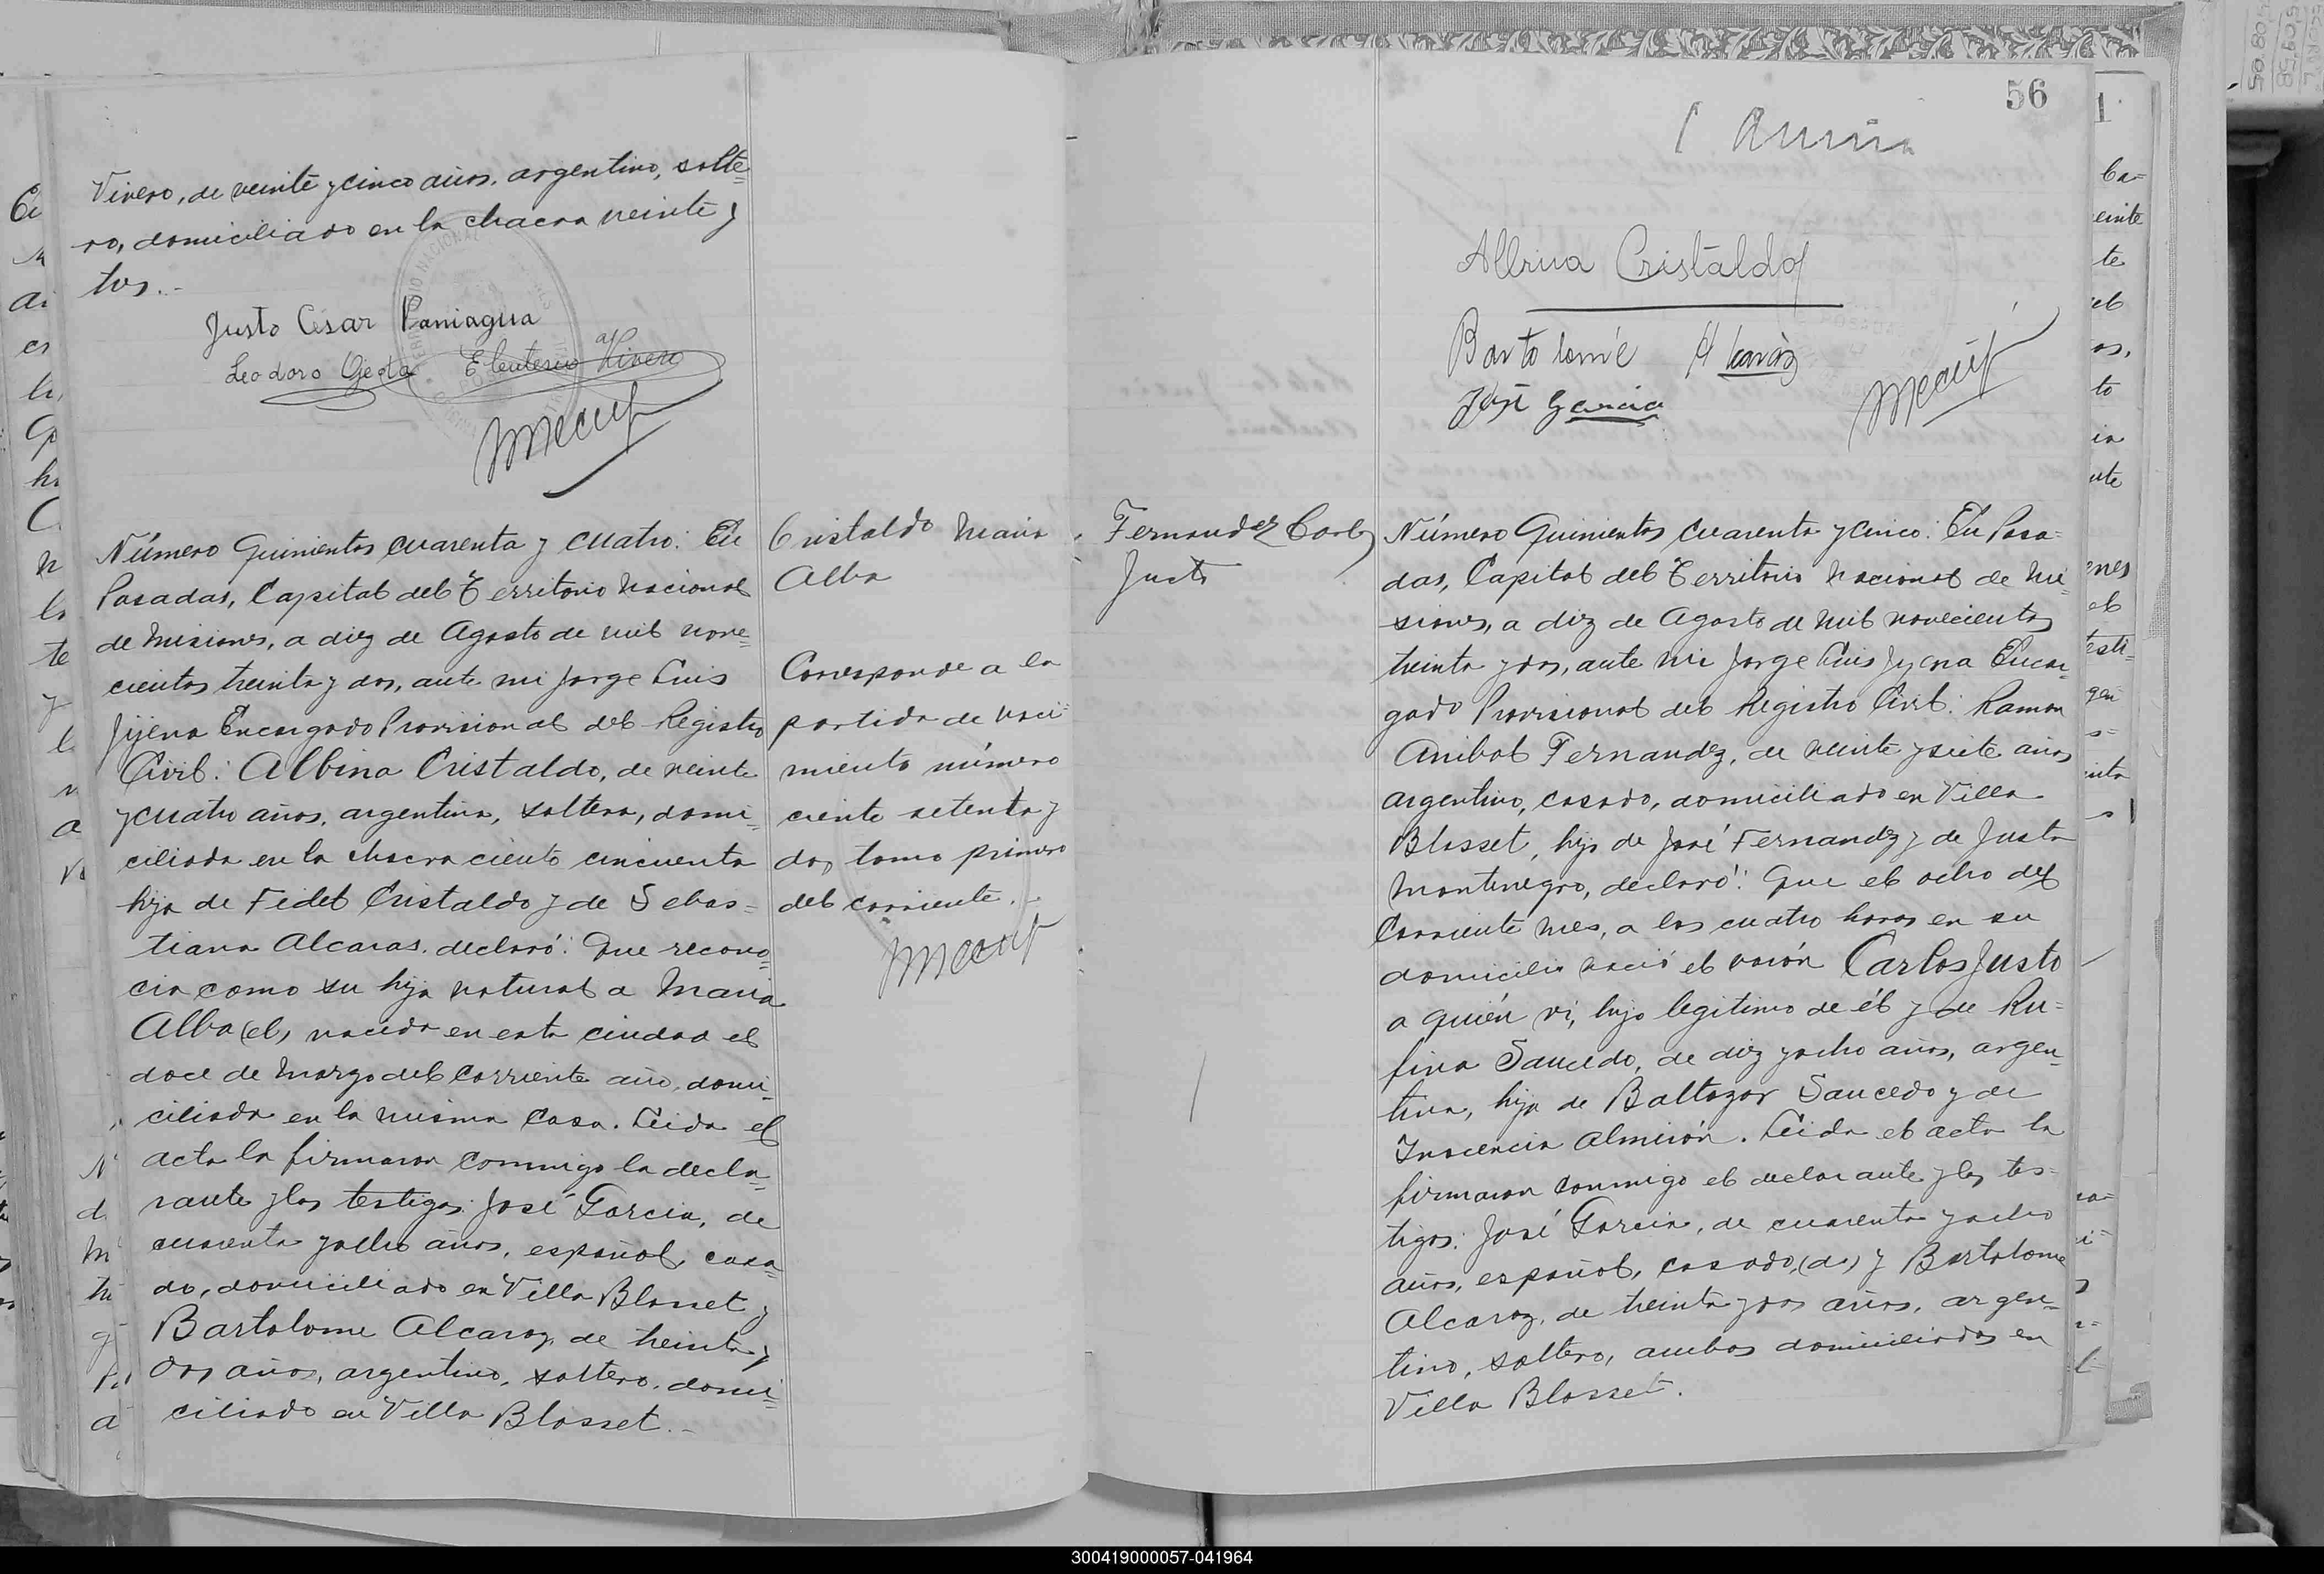 Vivero, de veinte y cinco años, argentino, solte=
ro, domiciliado en la chacra veinte y
tos.-
Justo César Paniagua
Leodoro Eleuterio Vivero
Número Quinientos cuarenta y cuatro: En
Posadas, Capital del Territorio Nacional
de Misiones, a diez de Agosto de mil nove=
cientos treinta y dos, ante mi Jorge Luis
Jijena Encargado Provisional del Registro
Civil: Albina Cristaldo, de veinte
y cuatro años, argentina, soltera, domi=
ciliada en la chacra ciento cincuenta
hija de Fidel Cristaldo y de Sebas=
tiana Alcaras, declaró: Que recono=
cia como su hija natural a Maria
Alba (el), nacida en esta ciudad el
doce de Marzo del corriente año, domi=
ciliada en la misma casa. Leida el
acta la firmaron conmigo la decla=
rante y los testigos: José Garcia, de
cuarenta y ocho años, español, casa=
do, domiciliado en Villa Blosset y
Bartolome Alcaraz, de treinta y
dos años, argentino, soltero, domi=
ciliado en Villa Blosset.-
Cristaldo Maria
Alba
Corresponde a la
partida de naci=
miento número
ciento setenta y
dos tomo primero
del corriente.-
56
Albina Cristaldo
Bartolomé Alcaráz
José Garcia
Fernandez Carlos
Justo
Número Quinientos cuarenta y cinco: En Posa=
das, Capital del Territorio Nacional de Mi=
siones, a diez de Agosto de mil novecientos
treinta y dos, ante mi Jorge Luis Jijena Encar=
gado Provisional del Registro Civil: Ramon
Anibal Fernandez, de veinte y siete años
argentino, casado, domiciliado en Villa
Blosset, hijo de José Fernandez y de Justa
Montenegro, declaró: Que el ocho del
corriente mes, a las cuatro horas en su
domicilio nació el varón Carlos Justo
a quién vi, hijo legitimo de él y de Ru=
fina Saucedo, de diez y ocho años, argen=
tina, hija de Baltazar Saucedo y de
Inocencia Almirón. Leida el acta la
firmaron conmigo el declarante y los tes=
tigos: José Garcia, de cuarenta y ocho
años, español, casado, (do) y Bartolome
Alcaraz, de treinta y dos años, argen=
tino, soltero, ambos domiciliados en
Villa Blosset.
300419000057-041964